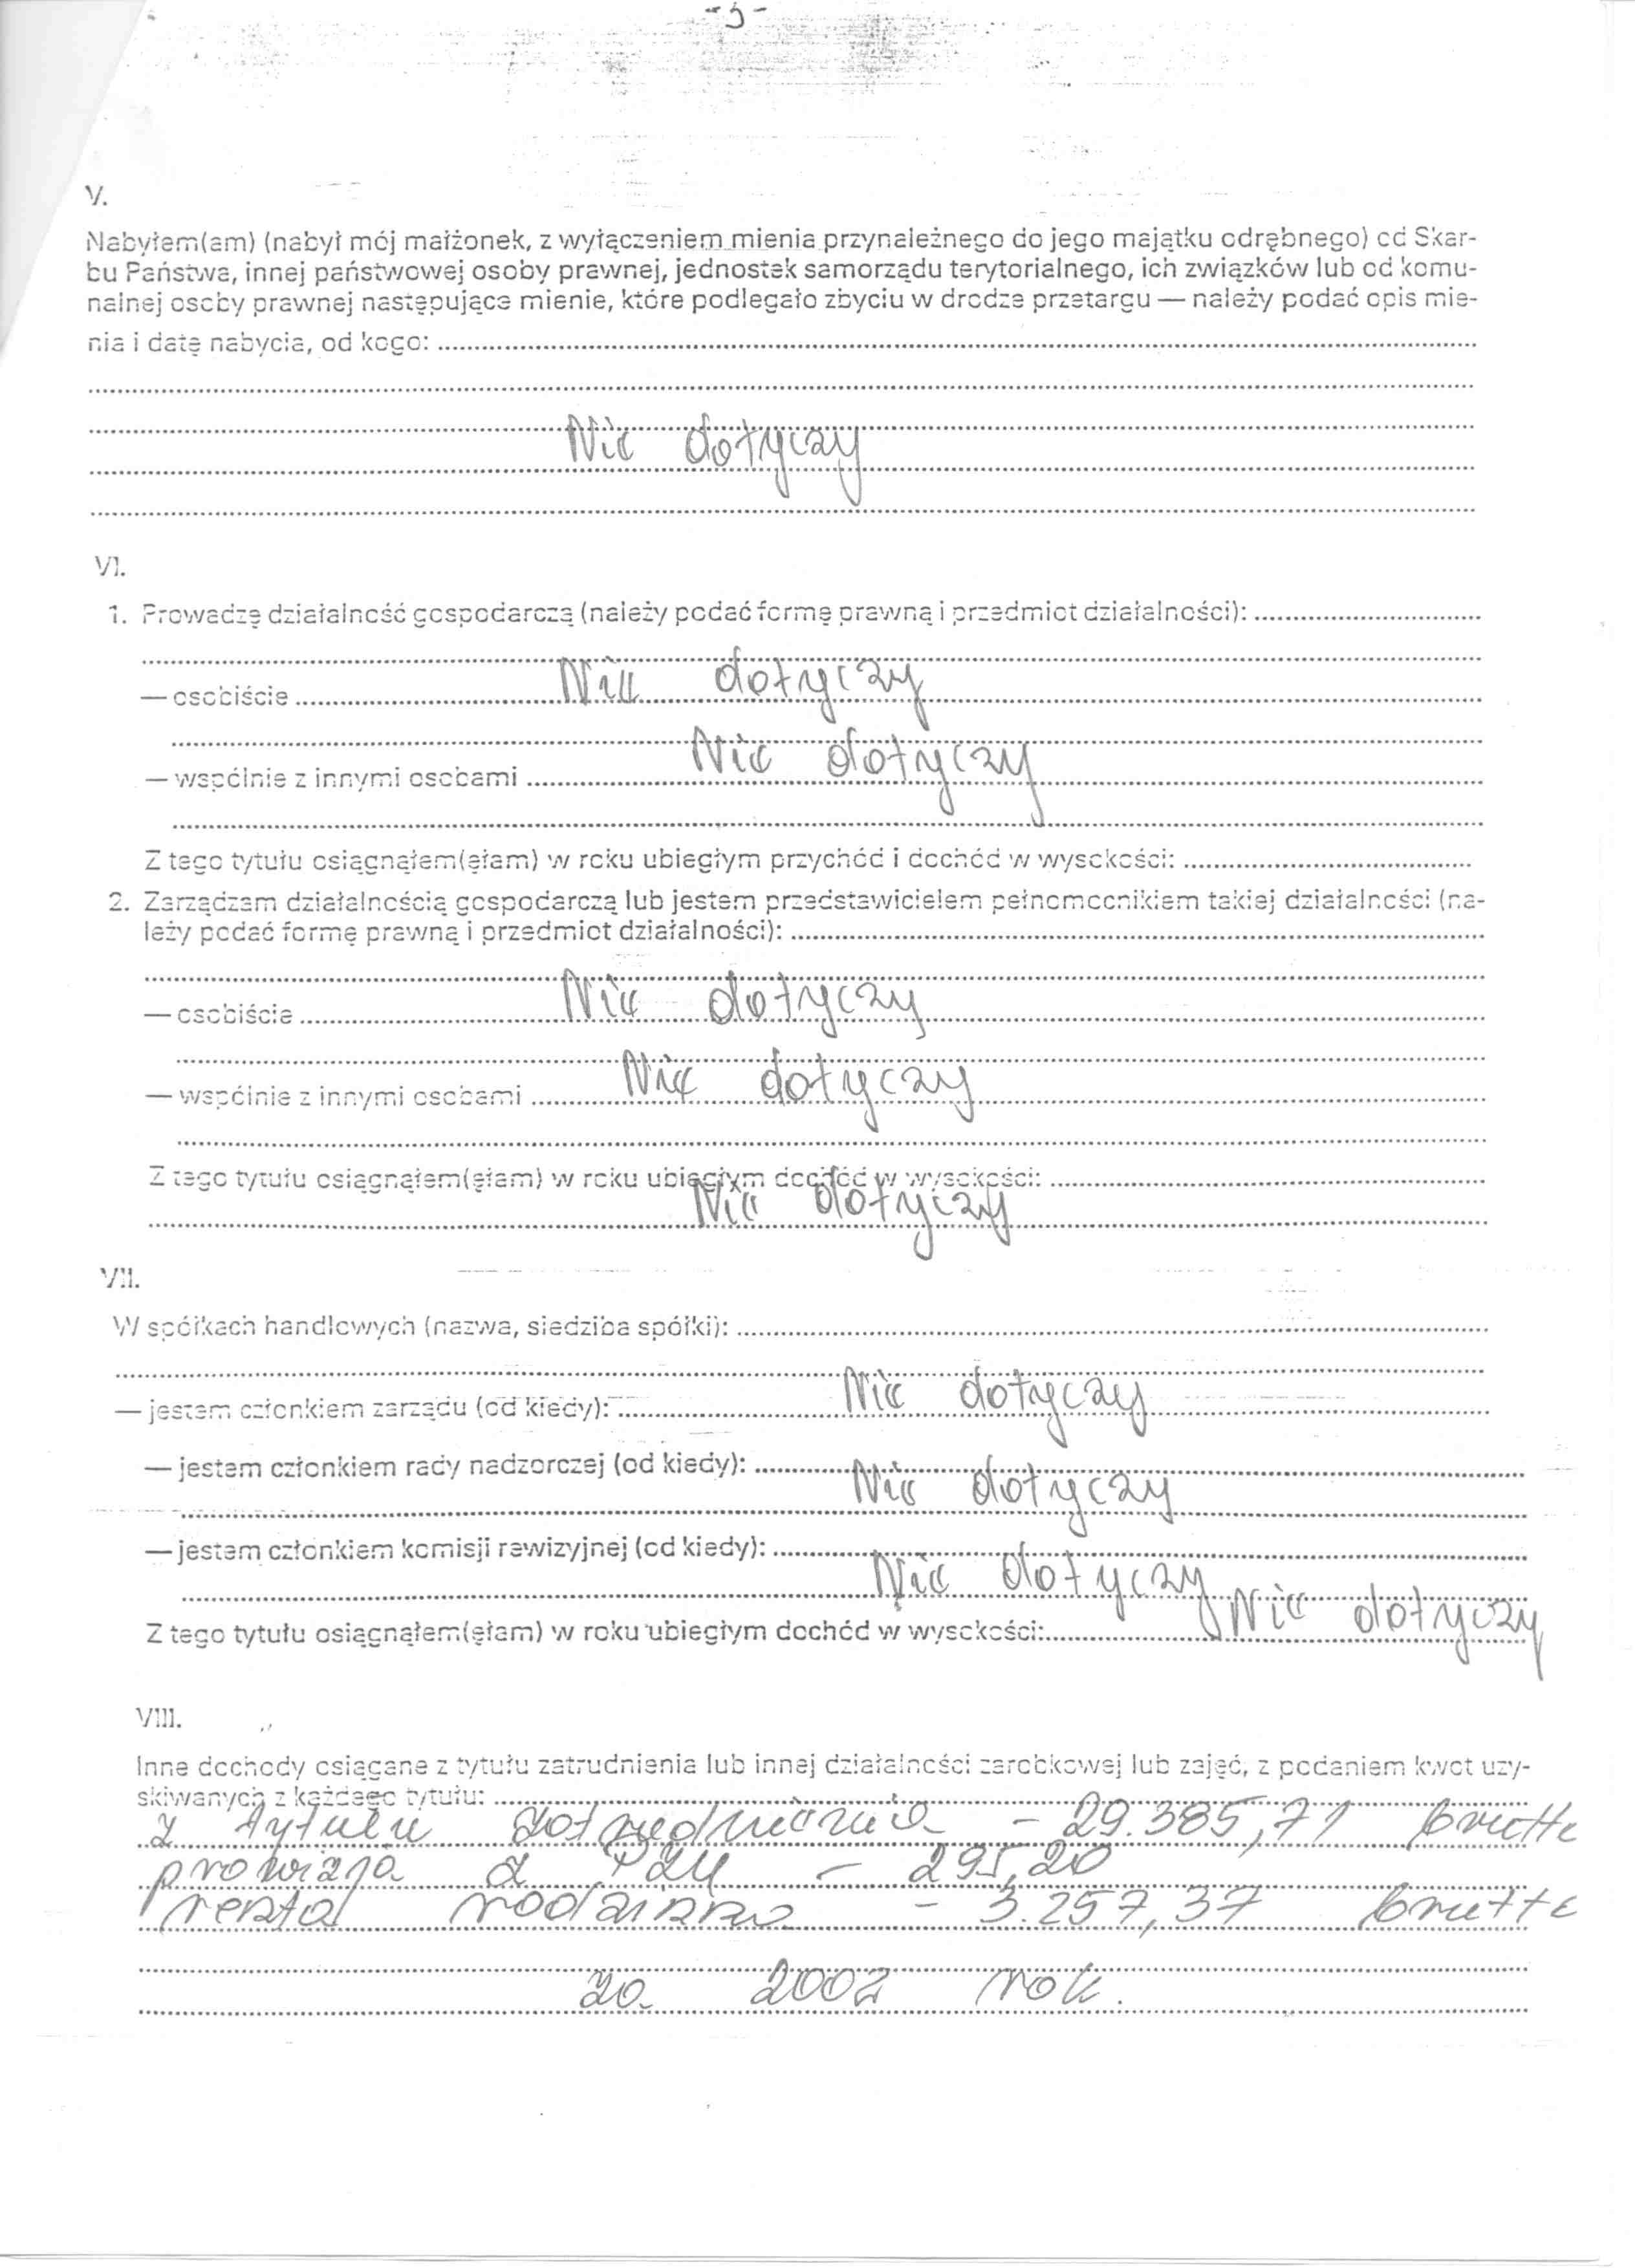 - 3 -
V.
Nabyłem(am) (nabył mój małżonek, z wyłączeniem mienia przynależnego do jego majątku odrębnego) od Skar-
bu Państwa, innej państwowej osoby prawnej, jednostek samorządu terytorialnego, ich związków lub od komu-
nalnej osoby prawnej następujące mienie, które podlegało zbyciu w drodze przetargu — należy podać opis mie-
nia i datę nabycia, od kogo:
Nie dotyczy
VI.
1. Prowadzę działalność gospodarczą (należy podać formę prawną i przedmiot działalności):
— osobiście Nie dotyczy
— wspólnie z innymi osobami Nie dotyczy
Z tego tytułu osiągnąłem(ęłam) w roku ubiegłym przychód i dochód w wysokości:
2. Zarządzam działalnością gospodarczą lub jestem przedstawicielem pełnomocnikiem takiej działalności (na-
leży podać formę prawną i przedmiot działalności):
— osobiście Nie dotyczy
— wspólnie z innymi osobami Nie dotyczy
Z tego tytułu osiągnąłem(ęłam) w roku ubiegłym dochód w wysokości:
Nie dotyczy
VII.
W spółkach handlowych (nazwa, siedziba spółki):
— jestem członkiem zarządu (od kiedy): Nie dotyczy
— jestem członkiem rady nadzorczej (od kiedy):
Nie dotyczy
— jestem członkiem komisji rewizyjnej (od kiedy):
Nie dotyczy
Z tego tytułu osiągnąłem(ęłam) w roku ubiegłym dochód w wysokości: Nie dotyczy
VIII.
Inne dochody osiągane z tytułu zatrudnienia lub innej działalności zarobkowej lub zajęć, z podaniem kwot uzy-
skiwanych z każdego tytułu:
z tytułu zatrudnienia - 29.385,71 brutto
prowizja z PZU - 295,20
renta rodzinna - 3.257,37 brutto
za 2002 rok.